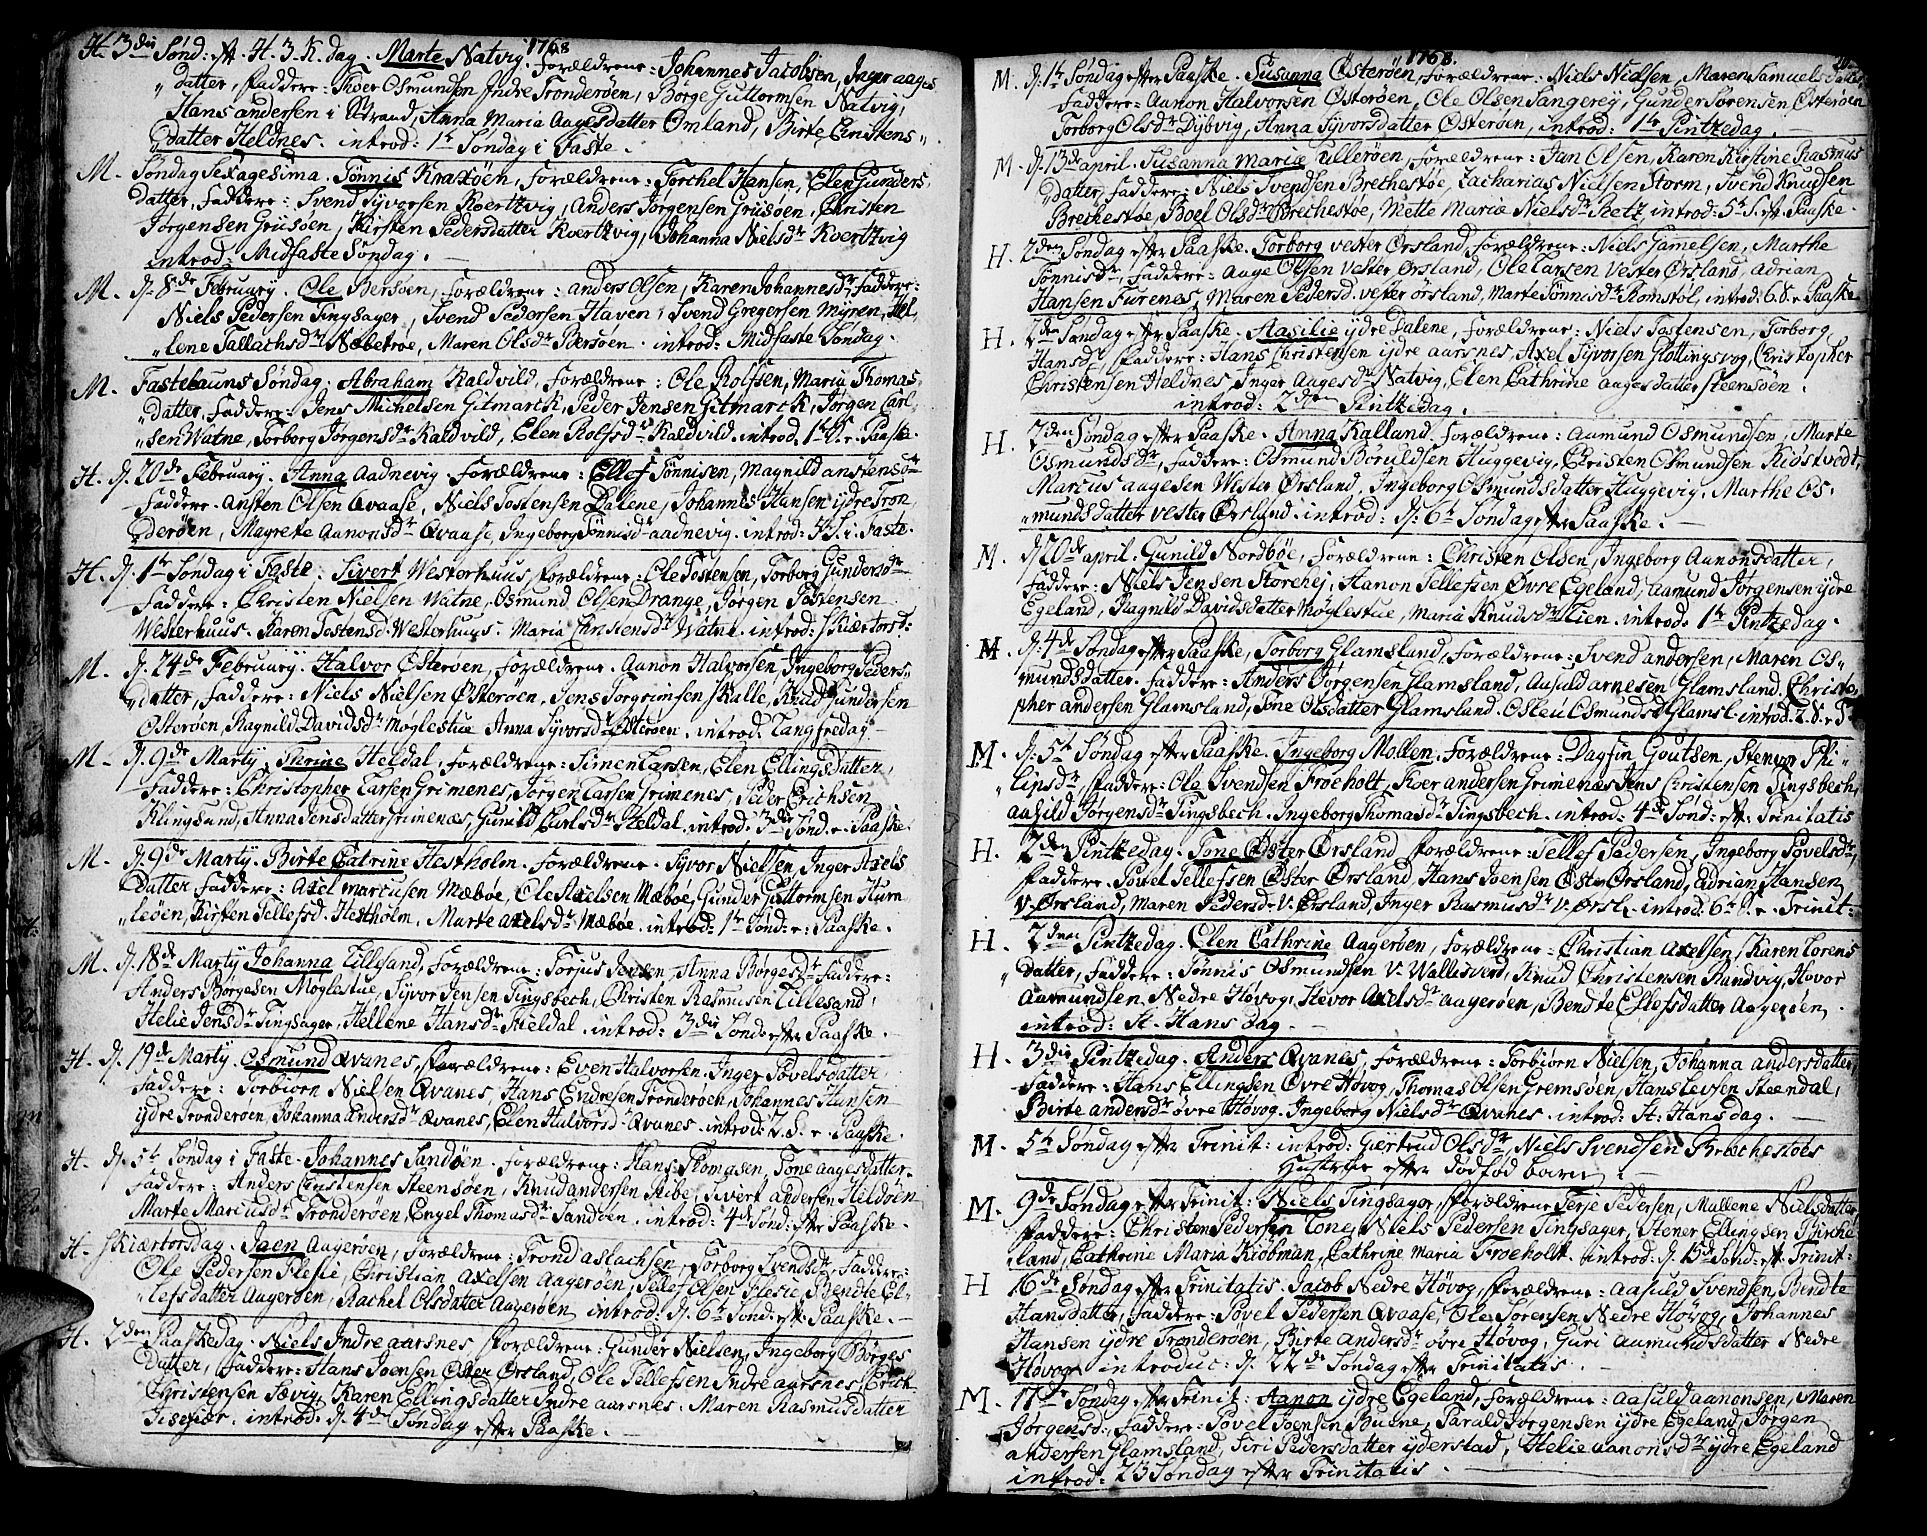 1768
H. 3die Sønd: eft. H. 3. K. dag. Marte Natvig. Forældrene: Johannes Jacobsen, Inger aages
datter, Faddere: Thoer Osmundsen Indre Tronderøen, Børge Guttormsen Natvig,
Hans andersen i Strand, Anna Maria Aagesdatter Omland, Birte Christens
datter Heldnes. introd: 1te Søndag i Faste.
M. Søndag Sexagesima. Tønnis Kraxøen, Forældrene: Torchel Hansen, Elen Gunders
datter, Faddere: Svend Syvorsen Koertvig, Anders Jørgensen Griisøen, Christen
Jørgensen Griisøen, Kirsten Pedersdatter Koertvig, Johanna Nielsdr Koertvig
introd: Midfaste Søndag.
M. D. 8de February. Ole Bersøen, Forældrene: anders Olsen, Karen Johannesdr, Faddere:
Niels Pedersen Tingsager, Svend Pedersen Haven, Svend Gregersen Myren, Hel
lene Tallachsdr Næbetroe, Maren Olsdr Bersøen. introd: Midfaste Søndag.
M. Fastelauns Søndag. Abraham Kaldvild, Forældrene: Ole Rolfsen, Maria Thomas
datter, Faddere: Jens Michelsen Gitmarck, Peder Jensen Gitmarck, Jørgen Carl
sen Watne, Torborg Jørgensdr Kaldvild, Elen Rolfsdr Kaldvild. introd. 1te S. e. Paaske.
H. D. 20de February. Anna Aadnevig. Forældrene: Ellef Tønnisen, Magnild anstensdr
Faddere. Ansten Olsen Qvaase, Niels Tostensen Dalene, Johannes Hansen ydre Tron
derøen, Magrete Aanonsdr Qvaase, Ingeborg Tønnisdr aadnevig. introd: 4 S. i. Faste.
H. D. 1te Søndag i Faste. Sivert Westerhuus, Forældrene: Ole Tostensen, Torborg Gundersdr
Faddere: Christen Nielsen Watne, Osmund Olsen Drange, Jørgen Tostensen
Westerhuus. Karen Tostensd. Westerhuus. Maria Christensdr Watne. introd: Skiær torsd:
M. D. 24de February. Halvor Østerøen, Forældrene. Aanon Halvorsen, Ingeborg Peders
datter, Faddere: Niels Nielsen Østerøen, Jens Torgrimsen Skalle, Knud Gundersen
Østerøen, Ragnild Davidsdr Møglestue Anna Syvorsdr Østerøen. introd: Langfredag
M. D. 9de Marty. Thrine Heldal, Forældrene: Simen Larsen, Elen Ellingsdatter,
Faddere: Christopher Larsen Grimenes, Jørgen Larsen Grimenes, Peder Erichsen
Klingsund, Anna Jensdatter Grimenæs, Gunild Carlsdr Heldal. introd. 3die Sønd. e. Paaske.
M. D. 9de Marty. Birte Catrine Hestholm. Forældrene. Syvor Nielsen, Inger Axels
datter Faddere: Axel Marcusen Mæbøe, Ole Axelsen Mæbøe, Gunder Guttormsen Hurn
leøen, Kirsten Tellefsd. Hestholm. Marte axelsdr Mæbøe. introd: 1te Sønd: e: Paaske.
M. D. 18de Marty Johanna Lillesand, Forældrene: Torjus Jensen. Anna Børgesdr Faddere:
Anders Børgesen Møglestue, Syvor Jensen Tingsbech, Christen Rasmusen Lillesand,
Helie Jensdr Tingsager, Hellene Hansdr Hieldal. introd: 3die Sønd: efter Paaske.
H. D. 19de Marty. Osmund Qvanes, Forældrene: Even Halvorsen. Inger Povelsdatter,
Faddere: Torbiørn Nielsen Qvanes, Hans Endresen Tronderøen, Johannes Hansen
ydre Tronderøen, Johanna andersdr Qvanes, Elen Halvorsd. Qvanes. introd: 2. S. e Paaske.
H. D. 5te Søndag i Faste. Johannes Sandøen. Forældrene: Hans Thomasen, Tone aagesdatter.
Faddere: Anders Christensen Steensøen, Knud andersen Ribe, Sivert andersen Heldøen
Marte Marcusdr Tronderøen, Engel Thomasdr Sandøen. introd: 4de Sønd: efter Paaske.
H. Skiærtorsdag. Jaen Aagerøen, Forældrene: Trond aslachsen, Torborg Svendsdr, Faddere:
Ole Pedersen Flesie, Christian Axelsen Aagerøen, Tellef Olsen Flesie, Bendte El
lefsdatter Aagerøen, Rachel Olsdatter Aagerøen introd: D. 6te Sønd: eft. Paaske.
H. 2den Paaskedag. Niels Indre aarsnes, Forældrene: Gunder Nielsen, Ingeborg Børges
datter, Faddere: Hans Joensen Øster Ørsland, Ole Tellefsen Indre aarsnes, Erick
Christensen Sævig, Karen Ellingsdatter Indre aarsnes. Maren Rasmusdatter
Isefiær. introd. D. 4de Søndag efter Paaske.
1768.
M. D. 1te Søndag efter Paaske. Susanna Østerøen, Forældrene: Niels Nielsen, Maren Samuelsdatter
Faddere: Aanon Halvorsen Østerøen, Ole Olsen Sangereij, Gunder Sørensen Østerøen
Torborg Olsdr Dybvig, Anna Syvorsdatter Østerøen, introd: 1te Pintzedag.
M. D. 13de april. Susanna Maria Ullerøen, Forældrene: Jan Olsen, Karen Kirstine Rasmus
datter, Faddere: Niels Svendsen Brechestøe, Zacharias Nielsen Storm, Svend Knudsen
Brechestøe, Boel Olsdr Brechestøe, Mette Maria Nielsdr Retz, introd: 5te S. eft. Paaske.
H. 2den Søndag efter Paaske. Torborg vester Ørsland, Forældrene: Niels Gamelsen, Marthe
Tønnisdr, Faddere: Aage Olsen Vester Ørsland, Ole Larsen Vester Ørsland, Adrian
Hansen Furenes, Maren Pedersd. vester ørsland, Marte Tønnisdr Romstøl, introd: 6. S. e Paaske
H. 2den Søndag efter Paaske. Aasilie ydre Dalene, Forældrene: Niels Tostensen, Torborg
Hansdr, Faddere: Hans Christensen ydre aarsnes, Axel Syvorsen Glottingsvog, Christopher
Christensen Heldnes, Inger Aagesdr Natvig, Elen Cathrine aagesdatter Steensøen.
introd: 2den Pintzedag.
H. 2den Søndag efter Paaske. Anna Kalland. Forældrene: Aamund Osmundsen, Marte
Osmundsdr, Faddere: Osmund Boruldsen Huggevig, Christen Osmundsen Kiøstvedt,
Marcus aagesen Vester Ørsland, Ingeborg Osmundsdatter Huggevig. Marthe Os
mundsdatter vester Ørsland. introd: D: 6te Søndag efter Paaske.
M. D. 20de april. Gunild Nordbøe, Forældrene: Christen Olsen, Ingeborg Aanonsdatter,
Faddere: Niels Jensen Storehej, Aanon Tellefsen Øvre Egeland, Aamund Jørgensen ydre
Egeland, Ragnild Davidsdatter Møglestue, Maria Knudsdr Lien. introd: 1te Pintzedag.
M. D. 4de Søndag efter Paaske, Torborg Glamsland, Forældrene: Svend andersen, Maren Os
mundsdatter. Faddere: Anders Jørgensen Glamsland, Aasuld arnesen Glamsland, Christo
pher andersen Glamsland, Tone Olsdatter Glamsland. Osleu Osmundsd. Glamsl. introd. 2. S. e T.
M. D. 5te Søndag efter Paaske. Ingeborg Mollen. Forældrene: Dagfin Goutsen, Stenvor Phi
lipsdr, Faddere: Ole Svendsen Froeholt, Thoer andersen Grimenæs, Jens Christensen Tingsbech,
Aasild Jørgensdr Tingsbech. Ingeborg Thomasdr Tingsbech. introd: 4de Sønd: eft. Trinitatis
H. 2den Pintzedag. Tone Øster Ørsland Forældrene: Tellef Pedersen, Ingeborg Povelsdr,
Faddere. Povel Tellefsen Øster Ørsland, Hans Joensen Øster Ørsland, Adrian Hansen
V. Ørsland, Maren Pedersd. V. Ørsland, Inger Rasmusdr V. Ørsl. introd: 6te S. e. Trinit:
H. 2den Pintzedag. Elen Cathrine Aagerøen, Forældrene: Christian Axelsen, Karen Lorens
datter, Faddere: Tønnis Osmundsen V. Wallisverd, Knud Christensen Rundvig, Hovor
Aamundsen Nedre Høvog, Stevor Axelsdr aagerøen, Bendte Ellefsdatter Aagerøen.
introd: St. Hans dag.
H. 3die Pintzedag. Anders Qvanes, Forældrene: Torbiørn Nielsen, Johanna andersdatter,
Faddere: Hans Ellingsen Øvre Høvog, Thomas Olsen Gremsøen, Hans Levsen Steendal,
Birte andersdr øvre Høvog. Ingeborg Nielsdr Qvanes. introd: St: Hansdag.
M. 5te Søndag efter Trinit: introd: Giertrud Olsdr, Niels Svendsen Brechestøes
Hustrue efter dødfød barn.
M. 9de Søndag efter Trinit: Niels Tingsager, Forældrene Terje Pedersen, Mallene Nielsdatter,
Faddere: Christen Pedersen Tone, Niels Pedersen Tingsager, Stener Ellingsen Birche
land, Cathrine Maria Kiøbman, Cathrine Maria Froeholt. introd: D. 13de Sønd: eft. Trinit:
H 16de Søndag efter Trinitatis. Jacob Nedre Høvog, Forældrene: Aasuld Svendsen, Bendte
Hansdatter, Faddere: Povel Pedersen Qvaase, Ole Sørensen Nedre Høvog, Johannes
Hansen ydre Tronderøen, Birte andersdr øvre Høvog, Guri Aamundsdatter Nedre
Høvog introduc: D. 22de Søndag efter Trinitatis.
M. 17de Søndag efter Trinit: Aanon ydre Egeland, Forældrene: Aasuld aanonsen, Maren
Jørgensd: Faddere: Povel Joensen Buene, Tarald Jørgensen ydre Egeland, Jørgen
andersen Glamsland, Siri Pedersdatter yderstad, Helie aanonsdr ydre Egeland
introd: 23 Søndag efter Trinitatis.